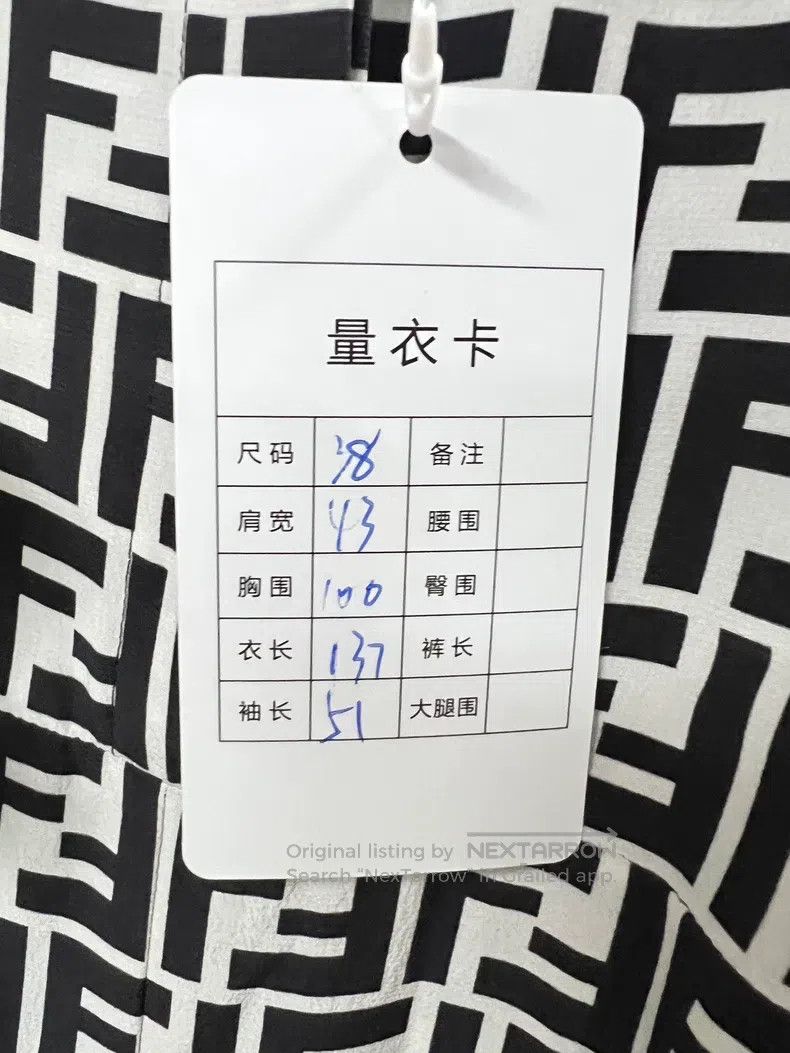 量衣卡
尺码 38 备注
肩宽 43 腰围
胸围 100 臀围
衣长 137 裤长
袖长 51 大腿围
Original listing by NEXTARROW
Search "NexTarrow" in Grailed app